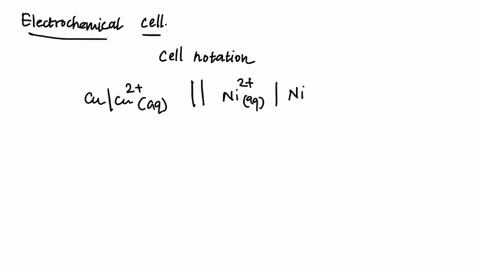 Electrochemical cell.
cell notation
Cu|Cu²⁺(aq) || Ni²⁺(aq) | Ni